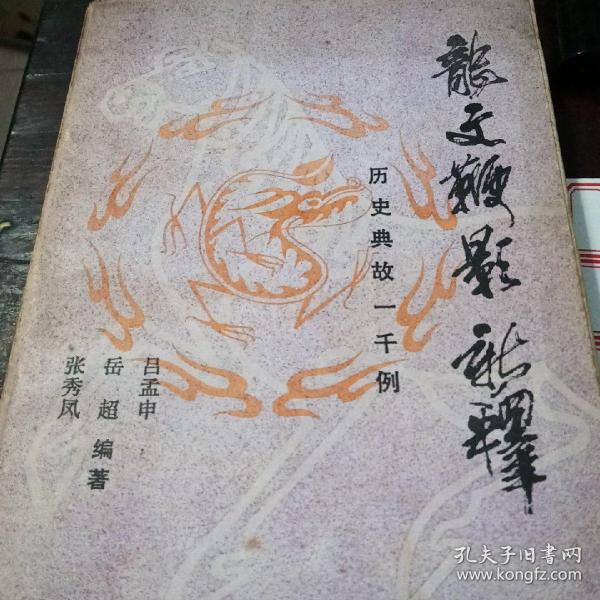 龍文鞭影新釋
历史典故一千例
吕孟申
岳超 编著
张秀凤
孔夫子旧書网
www.kongfz.com